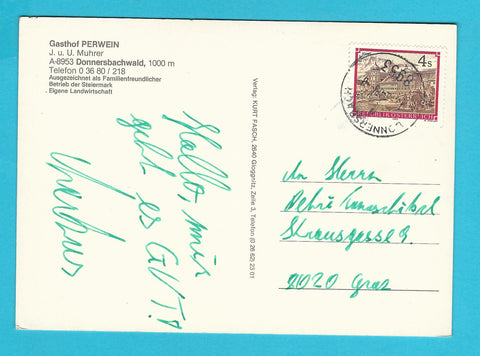 Gasthof PERWEIN
J. u. U. Muhrer
A-8953 Donnersbachwald, 1000 m
Telefon 0 36 80 / 218
Ausgezeichnet als Familienfreundlicher
Betrieb der Steiermark
Eigene Landwirtschaft
Hallo, mir
geht es GUT!
Verlag: KURT FASCH, 2640 Gloggnitz, Zeile 3, Telefon (0 26 62) 23 01
4 S
REPUBLIK ÖSTERREICH
8953
DONNERSBACH
An Herrn
Straussgasse
8020 Graz